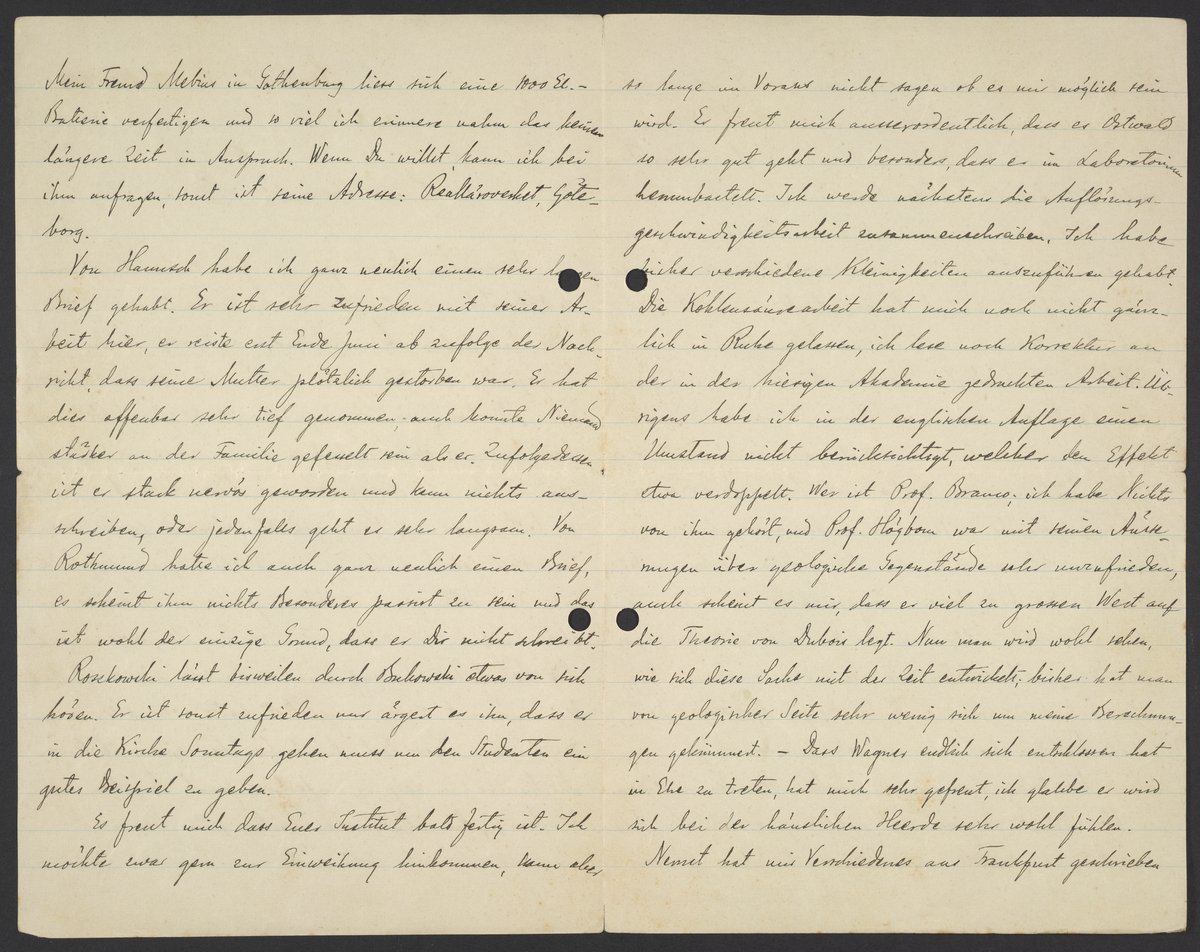 Mein Freund Mebius in Gothenburg liess sich eine 1000 El.-
Batterie verfertigen und so viel ich erinnere nahm das keinen
längere Zeit in Anspruch. Wenn Du willst, kann ich bei
ihm anfragen, sonst ist seine Adresse: Realläroverket, Göte-
borg.
Von Hannsch habe ich ganz neulich einen sehr
Brief gehabt. Er ist sehr zufrieden mit seiner Ar-
beit hier, er reiste erst Ende Juni ab zufolge der Nach-
richt, dass seine Mutter plötzlich gestorben war. Er hat
dies offenbar sehr tief genommen, auch konnte Niemand
stärker an der Familie gefesselt sein als er. Zufolgedessen
ist er stark nervös geworden und kann nichts aus-
schreiben, oder jedenfalls geht es sehr langsam. Von
Rothmund hatte ich auch ganz neulich einen Brief,
es scheint ihm nichts Besonderes passirt zu sein und das
ist wohl der einzige Grund, dass er Dir nicht schreibt.
Roszkowski lässt bisweilen durch Bukowski etwas von sich
hören. Er ist sonst zufrieden nur ärgert es ihn, dass er
in die Kirche Sonntags gehen muss um den Studenten ein
gutes Beispiel zu geben.
Es freut mich dass Euer Institut bald fertig ist. Ich
möchte zwar gern zur Einweihung hinkommen, kann aber
so lange im Voraus nicht sagen ob es mir möglich sein
wird. Er freut mich ausserordentlich, dass es Ostwald
so sehr gut geht und besonders, dass er im Laboratorium
herumbastelt. Ich werde nächstens die Auflösungs-
geschwindigkeitsarbeit zusammenschreiben. Ich habe
bisher verschiedene Kleinigkeiten auszuführen gehabt.
Die Kohlensäurearbeit hat mich noch nicht gänz-
lich in Ruhe gelassen, ich lese noch Korrektur an
der in der hiesigen Akademie gedruckten Arbeit. Üb-
rigens habe ich in der englischen Auflage einen
Umstand nicht berücksichtigt, welcher den Effekt
etwa verdoppelt. Wer ist Prof. Branco; ich habe Nichts
von ihm gehört, und Prof. Högbom war mit seinen Äusse-
rungen über geologische Gegenstände sehr unzufrieden,
auch scheint es mir, dass er viel zu grossen Wert auf
die Theorie von Dubois legt. Nun man wird wohl sehen,
wie sich diese Sache mit der Zeit entwickelt; bisher hat man
von geologischer Seite sehr wenig sich um meine Berechnun-
gen gekümmert. — Dass Wagner endlich sich entschlossen hat
in Ehe zu treten, hat mich sehr gefreut, ich glaube er wird
sich bei der häuslichen Heerde sehr wohl fühlen.
Nernst hat mir Verschiedenes aus Frankfurt geschrieben